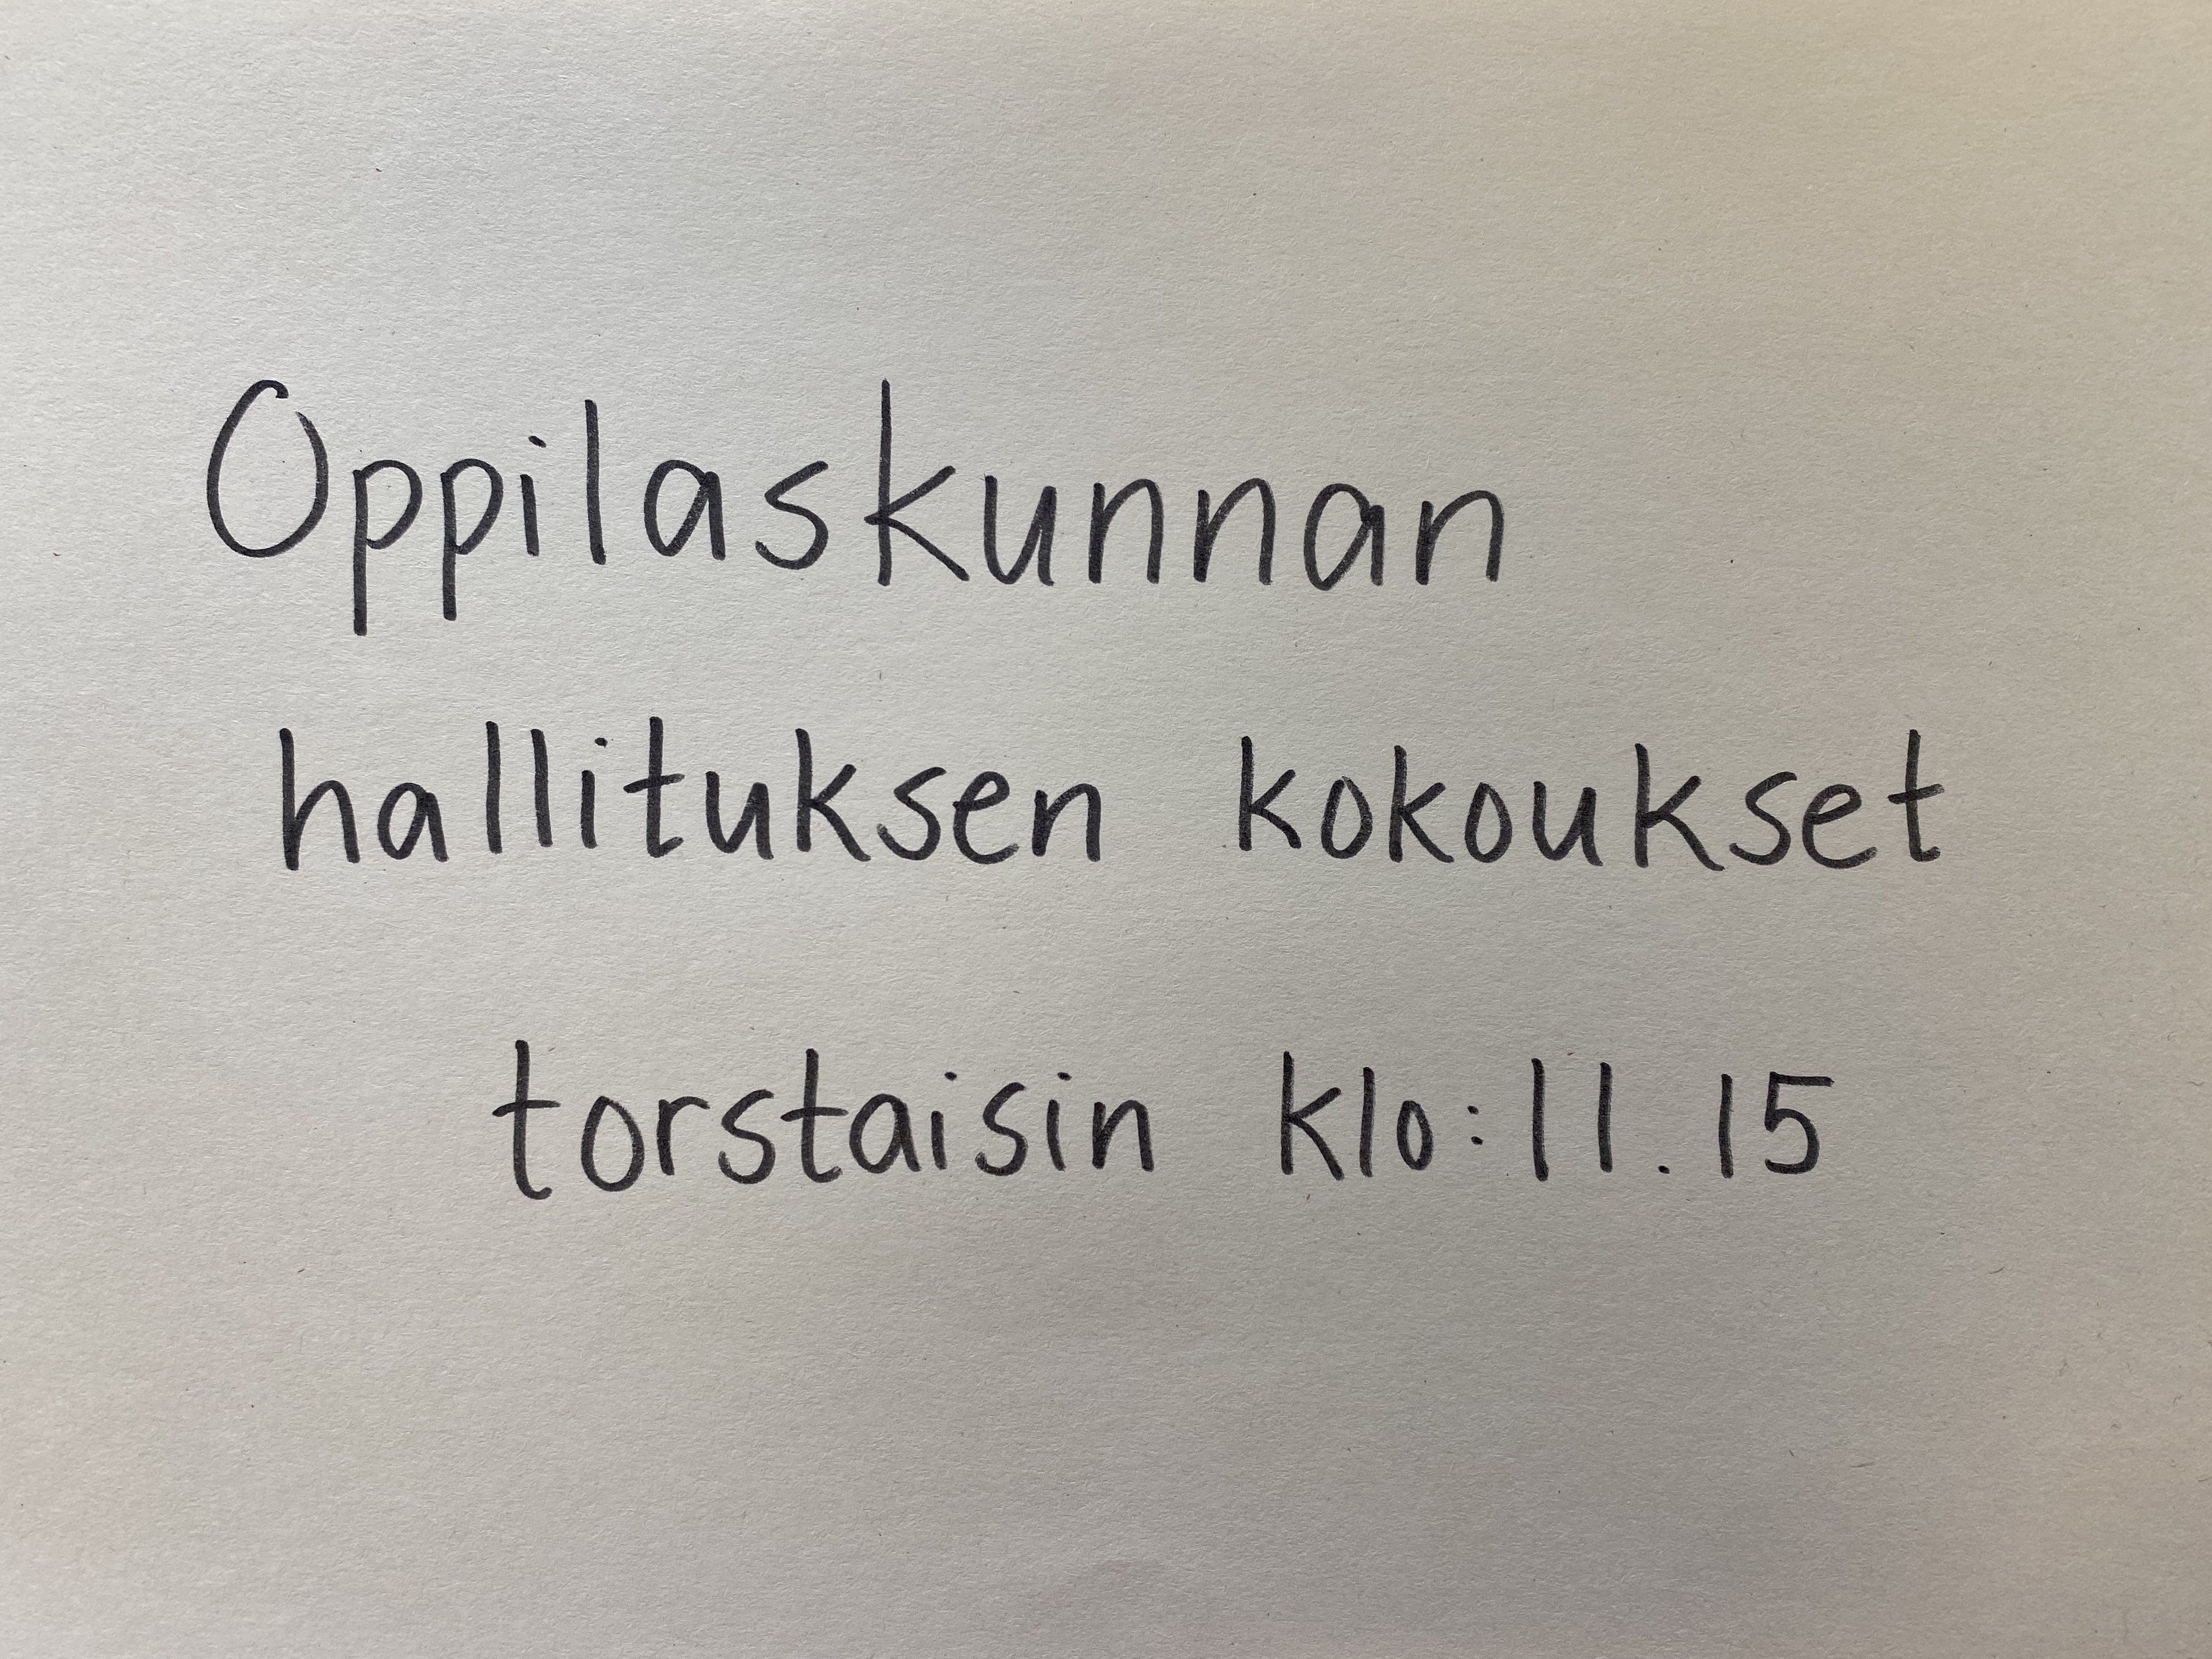 Oppilaskunnan
hallituksen kokoukset
torstaisin klo:11.15